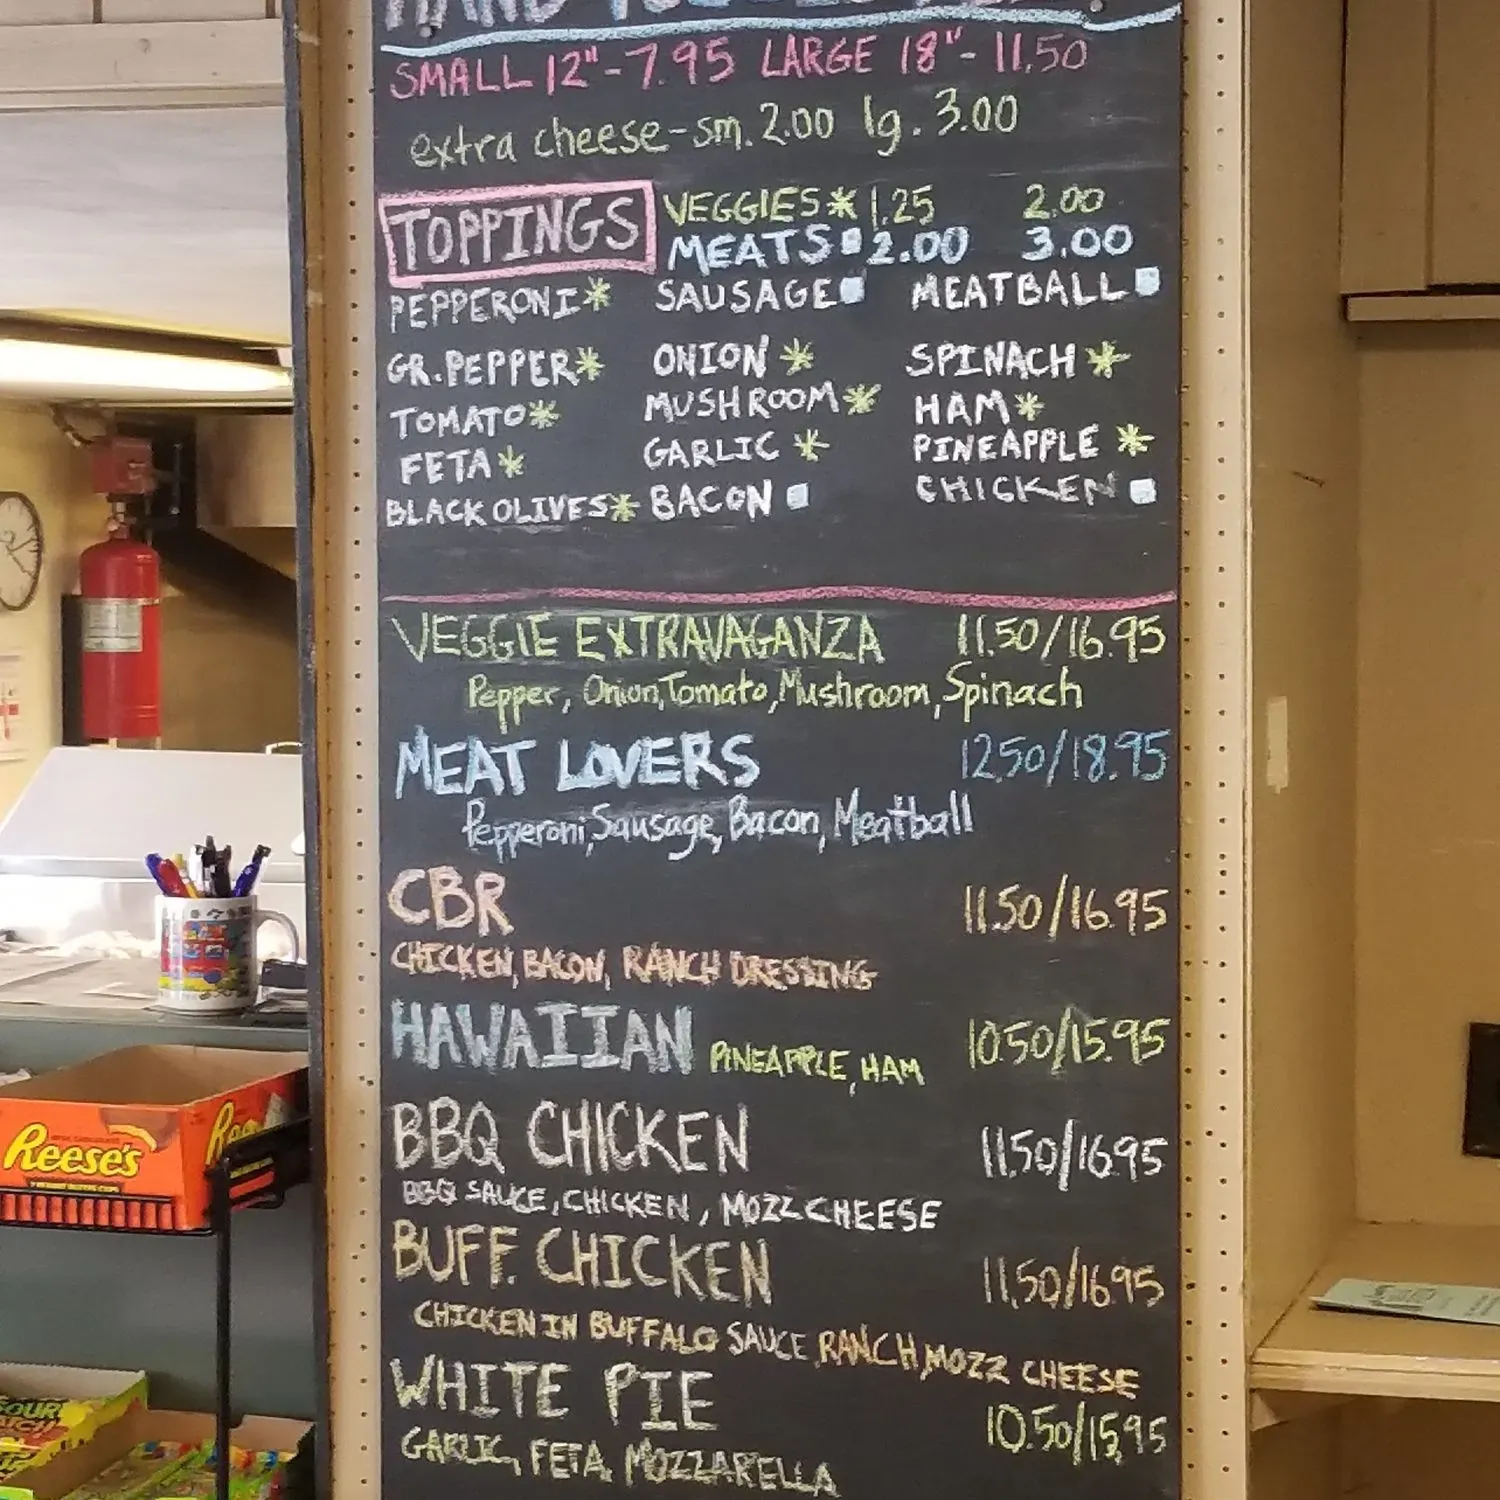 SMALL 12"-7.95 LARGE 18"-11.50
extra cheese-sm. 2.00 lg. 3.00
TOPPINGS VEGGIES* 1.25 2.00
MEATS 2.00 3.00
PEPPERONI* SAUSAGE MEATBALL
GR. PEPPER* ONION* SPINACH*
TOMATO* MUSHROOM* HAM*
FETA* GARLIC* PINEAPPLE*
BLACK OLIVES* BACON CHICKEN
VEGGIE EXTRAVAGANZA 11.50/16.95
Pepper, Onion, Tomato, Mushroom, Spinach
MEAT LOVERS 12.50/18.95
Pepperoni, Sausage, Bacon, Meatball
CBR 11.50/16.95
CHICKEN, BACON, RANCH DRESSING
HAWAIIAN PINEAPPLE, HAM 10.50/15.95
BBQ CHICKEN 11.50/16.95
BBQ SAUCE, CHICKEN, MOZZ CHEESE
BUFF. CHICKEN 11.50/16.95
CHICKEN IN BUFFALO SAUCE, RANCH, MOZZ CHEESE
WHITE PIE 10.50/15.95
GARLIC, FETA, MOZZARELLA
Reese's
SOUR